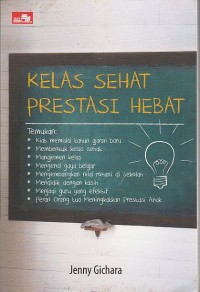 KELAS SEHAT
PRESTASI HEBAT
Temukan:
• Kiat memulai tahun ajaran baru
• Membentuk kelas sehat
• Manajemen kelas
• Mengenal gaya belajar
• Mengembangkan nilai murni di sekolah
• Mendidik dengan kasih
• Menjadi guru yang efektif
• Peran Orang tua Meningkatkan Prestasi Anak
Jenny Gichara